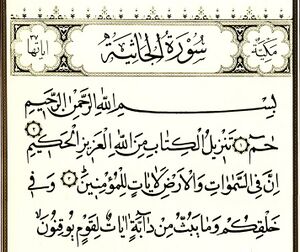 مكية
سورة الجاثية
٣٧ آياتها
بسم الله الرحمن الرحيم
حم ١ تنزيل الكتاب من الله العزيز الحكيم ٢
ان في السموات والارض لايات للمؤمنين ٣ وفي
خلقكم وما يبث من دابة ايات لقوم يوقنون